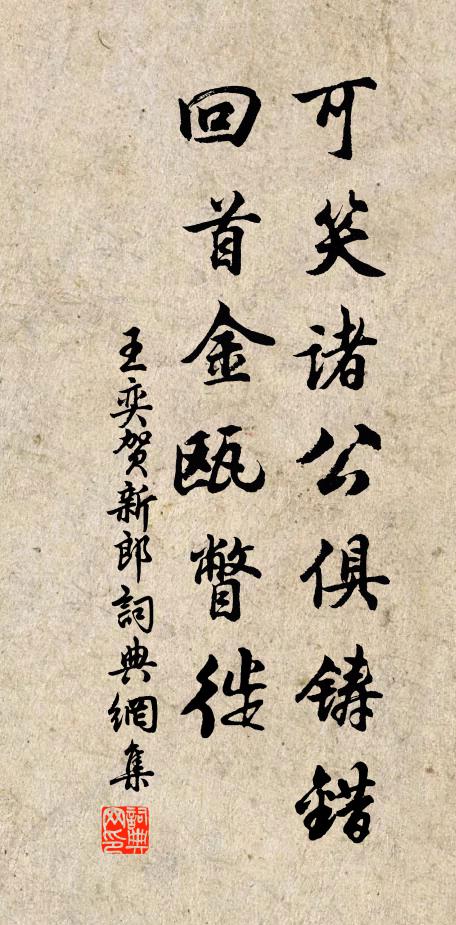 可笑诸公俱铸錯
回首金瓯瞥徙
王奕贺新郎詞典網集
詞典网印